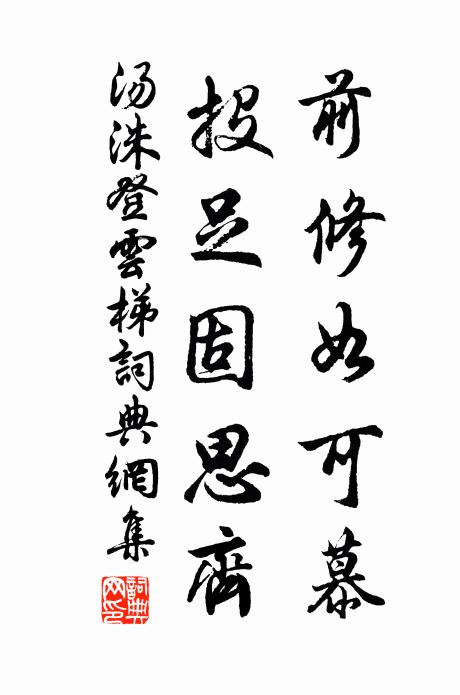 前修如可慕
投足固思齊
汤洙登雲梯詞典網集
詞典網印